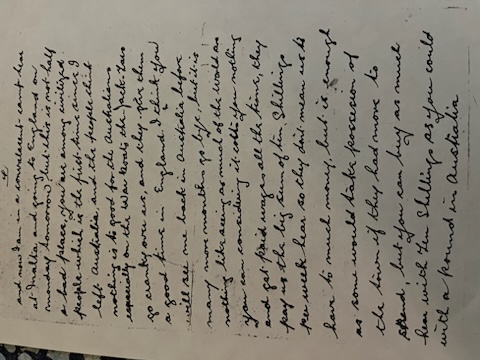 and now I am in a convalescent camp here
at and going to England on
monday tomorrow but this is not half
a bad place you are among civilized
people which is the first time since I
left Australia and the people think
nothing is to good for the Australians
especially on the War boats the Jack Tars
go crazy over us, and they give them
a good time in England. I think you
will see me back in Australia before
many more months go by, but it is
nothing like seeing as much of the world as
you can considering it costs you nothing
and get paid wages all the time, they
pay us the big sum of ten Shillings
per week hear so they dont mean us to
have to much money, but it is enough
as some would take possession of
the town if they had more to
spend but you can buy as much
hear with ten Shillings as you could
with a pound in Australia